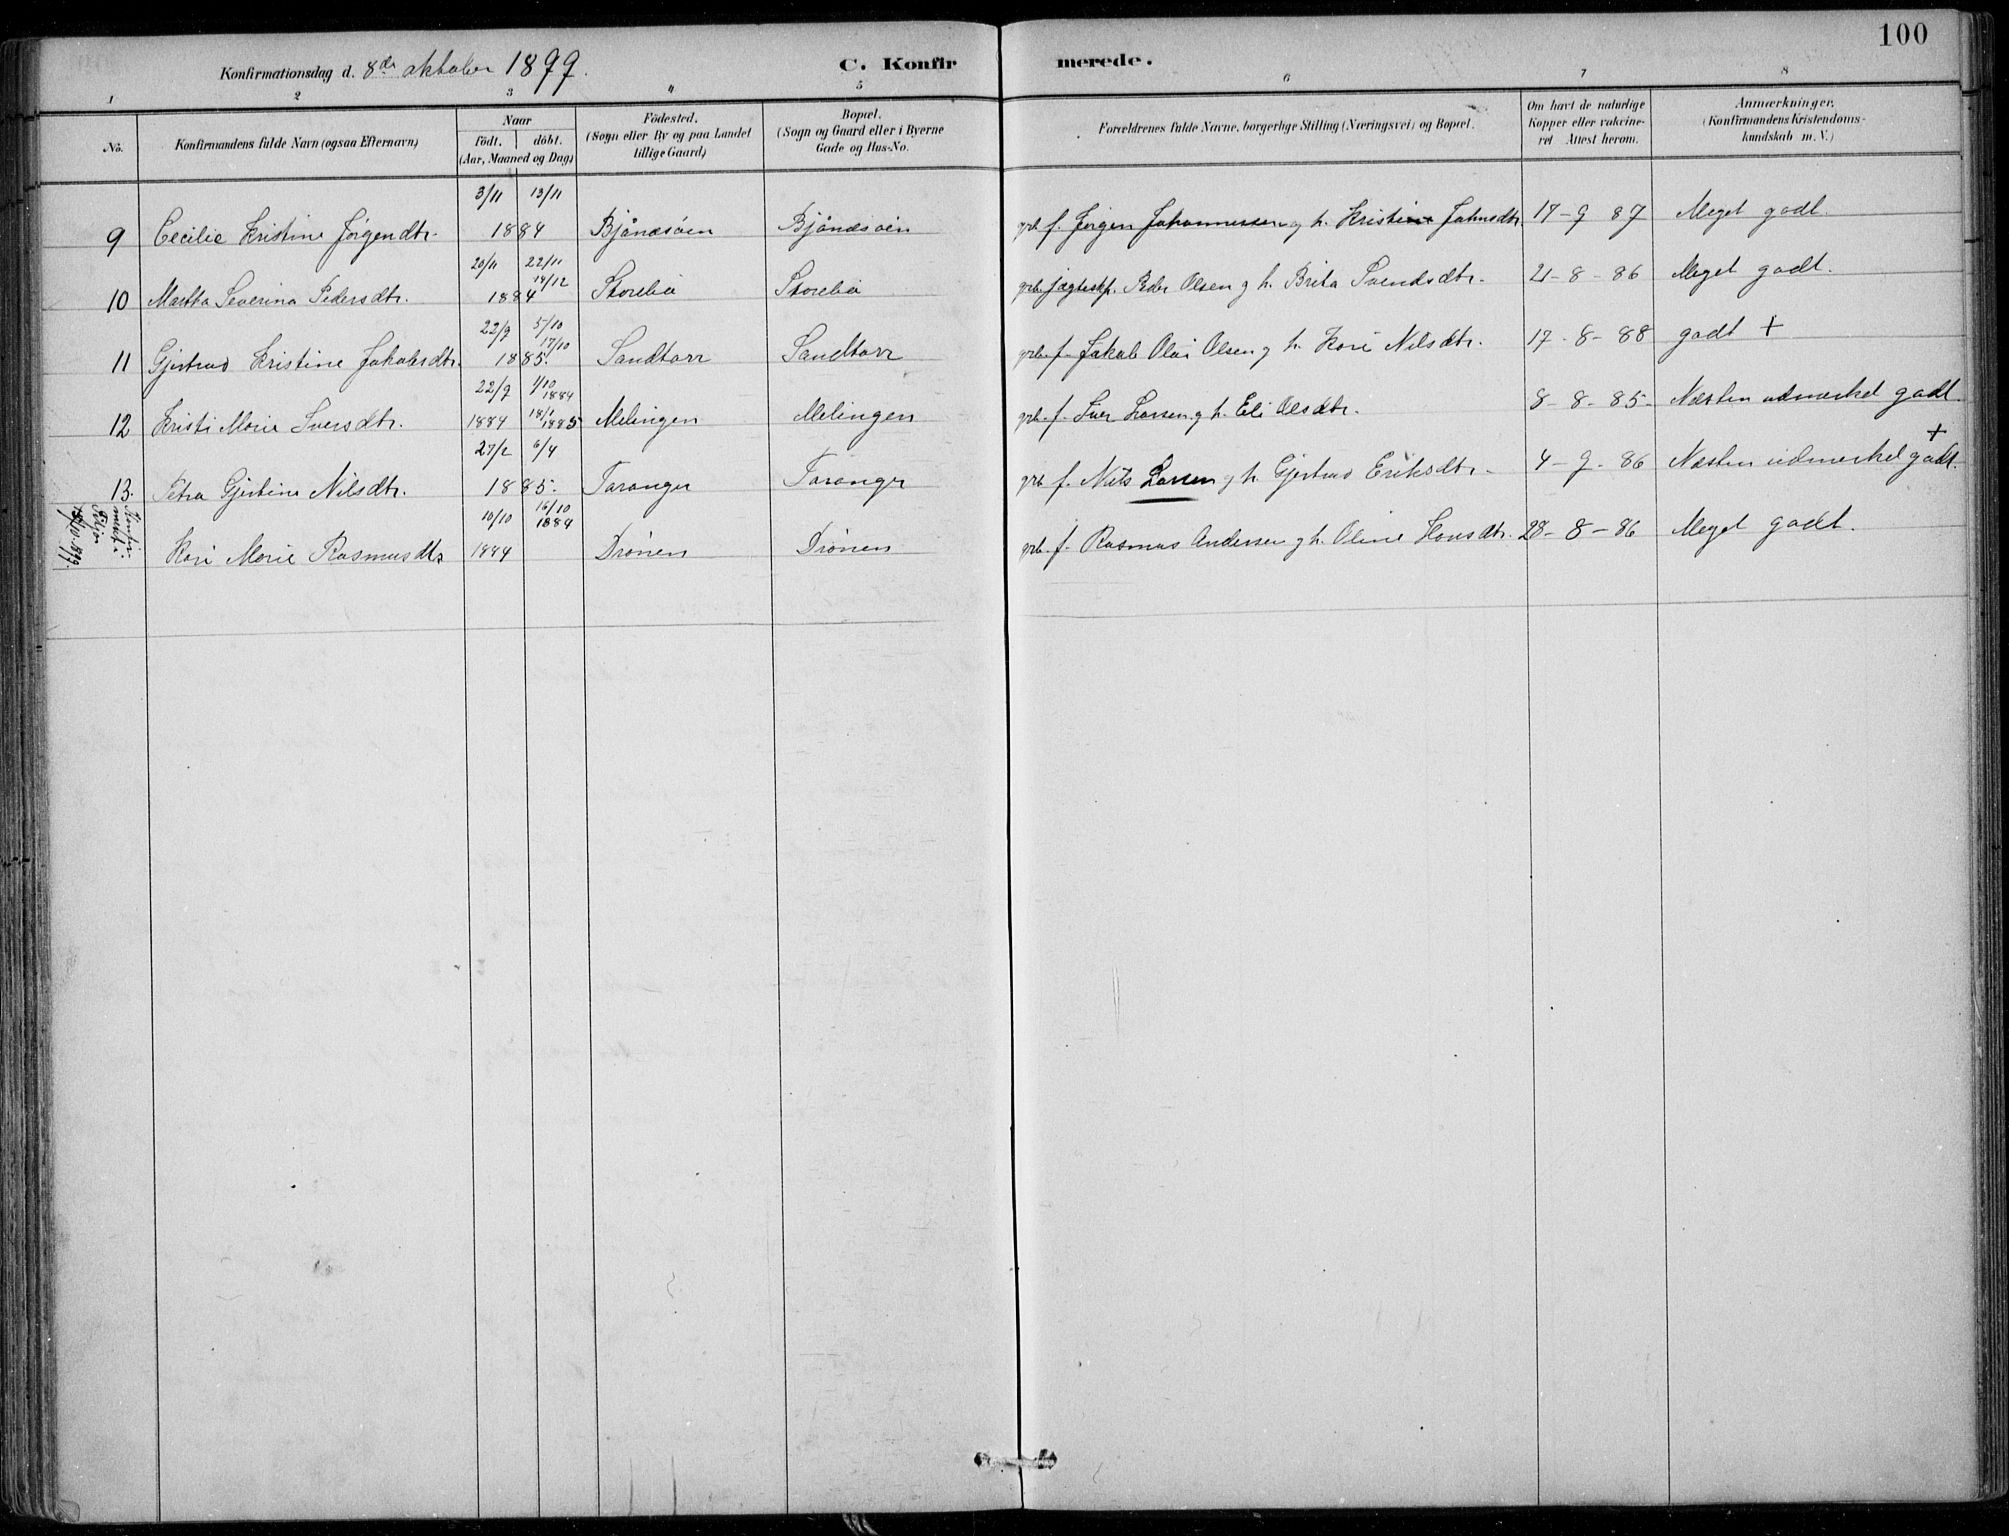 100
Konfirmationsdag d. 8de oktober 1899.
C. Konfirmerede.
1 2 3 4 5 6 7 8
No.
Konfirmandens fulde Navn (ogsaa Efternavn)
Naar
födt. döbt.
(Aar, Maaned og Dag)
Födested.
(Sogn eller By og paa Landet
tillige Gaard)
Bopæl.
(Sogn og Gaard eller i Byerne
Gade og Hus-No.
Forældrenes fulde Navne, borgerlige Stilling (Næringsvei) og Bopæl.
Om havt de naturlige
Kopper eller vakcine-
ret Attest herom.
Anmærkninger.
(Konfirmandens Kristendoms-
kundskab m. V.)
3/11 13/11
9 Cecilie Kristine Jørgendtr. 1884 Bjånæsøen Bjånæsøen grb. f. Jørgen Johannessen og h. Kristine Johnsdtr. 17-9 87 Meget godt.
20/11 22/11 14/12
10 Martha Severina Pedersdtr. 1884 Storebø Storebø grb. jægteskp. Peder Olsen og h. Brita Svendsdtr. 21-8-86 Meget godt.
22/9 5/10 17/10
11 Gjertrud Kristine Jakobsdtr. 1885. Sandtorv Sandtorv grb. f. Jakob Olai Olsen og h. Kari Nilsdtr. 17-8-88 godt +
22/9 1/10 1884
12 Kristi Marie Iversdtr. 1884 18/1 1885 Melingen Melingen grb. f. Iver Larsen og h. Eli Olsdtr. 8-8-85- Næsten udmerket godt.
27/2 6/4
13. Petra Gjertine Nilsdtr. 1885. Taranger Taranger grb f. Nils Larsen og h. Gjertrud Eriksdtr. 4-9-86 Næsten udmerket godt. +
10/10 16/10 1884
Kari Marie Rasmusdtr 1884 Drønen Drønen grb. f. Rasmus Andersen og h. Oline Hansdtr. 28-8-86 Meget godt.